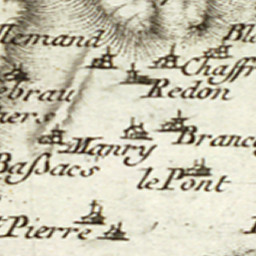 llemand
Bl
Chaffr
Redon
ebrau
iers
Manry
Branco
Baßacs
le Pont
Pierre